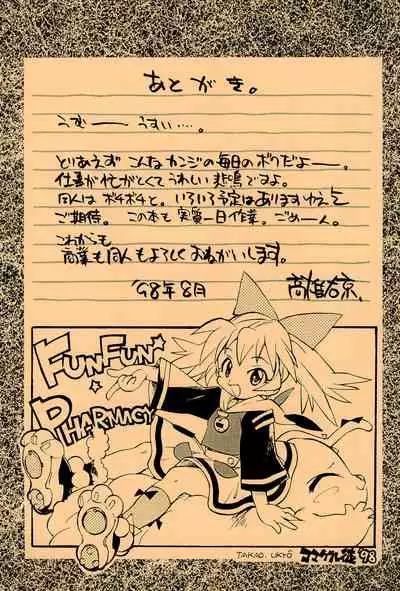 あとがき。
うむ――うすい‥‥。
とりあえず こんなカンジの毎日のボクだよー。
仕事が忙がしくてうれしい悲鳴ですよ。
同人は ボチボチと。いろいろ予定はありますゆえ
ご期待。この本も 実質一日作業。ごめーん。
これからも
商業も同人もよろしくおねがいします。
'98年8月 高雄右京.
FUNFUN
PHARMACY
TAKAO. UKYŌ
'98